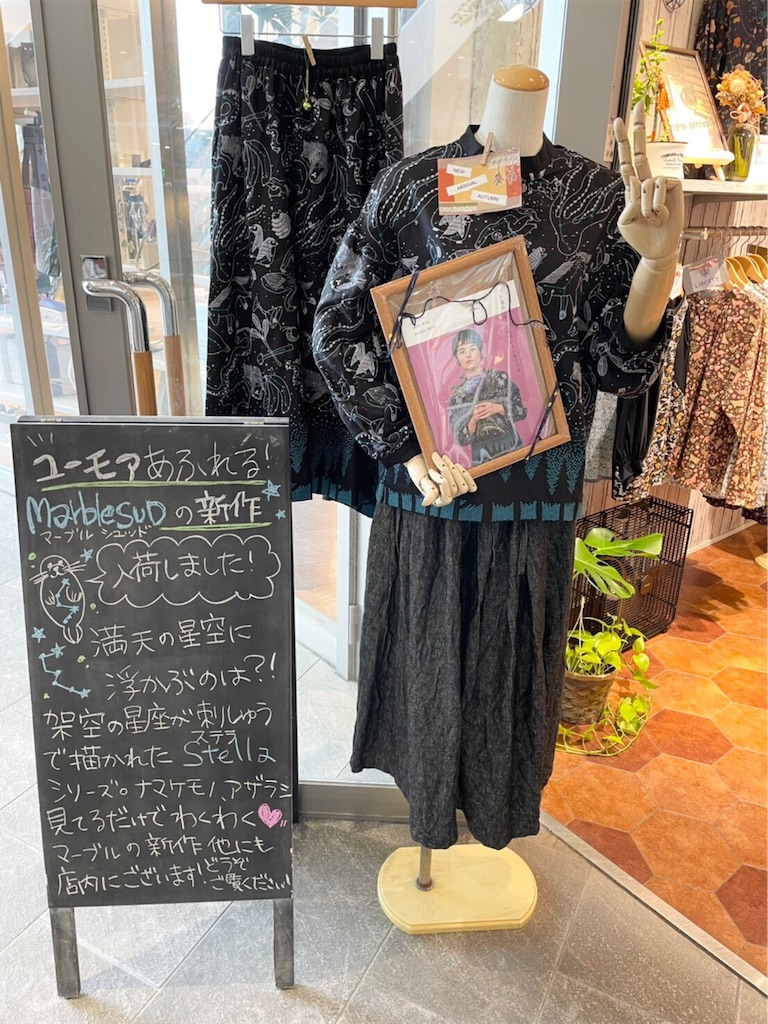 NEW
ARRIVAL
AUTUMN
ユーモアあふれる!
Marble SUDの新作
マーブル シュッド
入荷しました!
満天の星空に
浮かぶのは?!
架空の星座が刺しゅう
で描かれた Stella
ステラ
シリーズ。ナマケモノ、アザラシ
見てるだけでわくわく
マーブルの新作 他にも
店内にございます!どうぞ
ご覧ください!